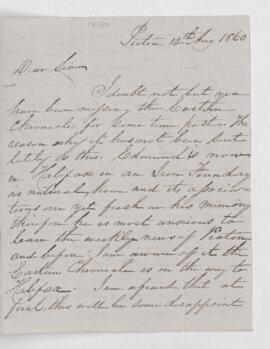 Pictou 14th Aug 1860
Dear Sir
I doubt not but you
have been missing the Eastern
Chronicle for some time past. The
reason why it has not been sent
lately is this. Edmund is now
in Halifax in an Iron Foundry
as natural, home and its associa
tions are yet fresh in his memory
therefore he is most anxious to
learn the weekly news of Pictou
and before I am aware of it the
Eastern Chronicle is on the way to
Halifax. I am afraid that at
first this will be some disappoint